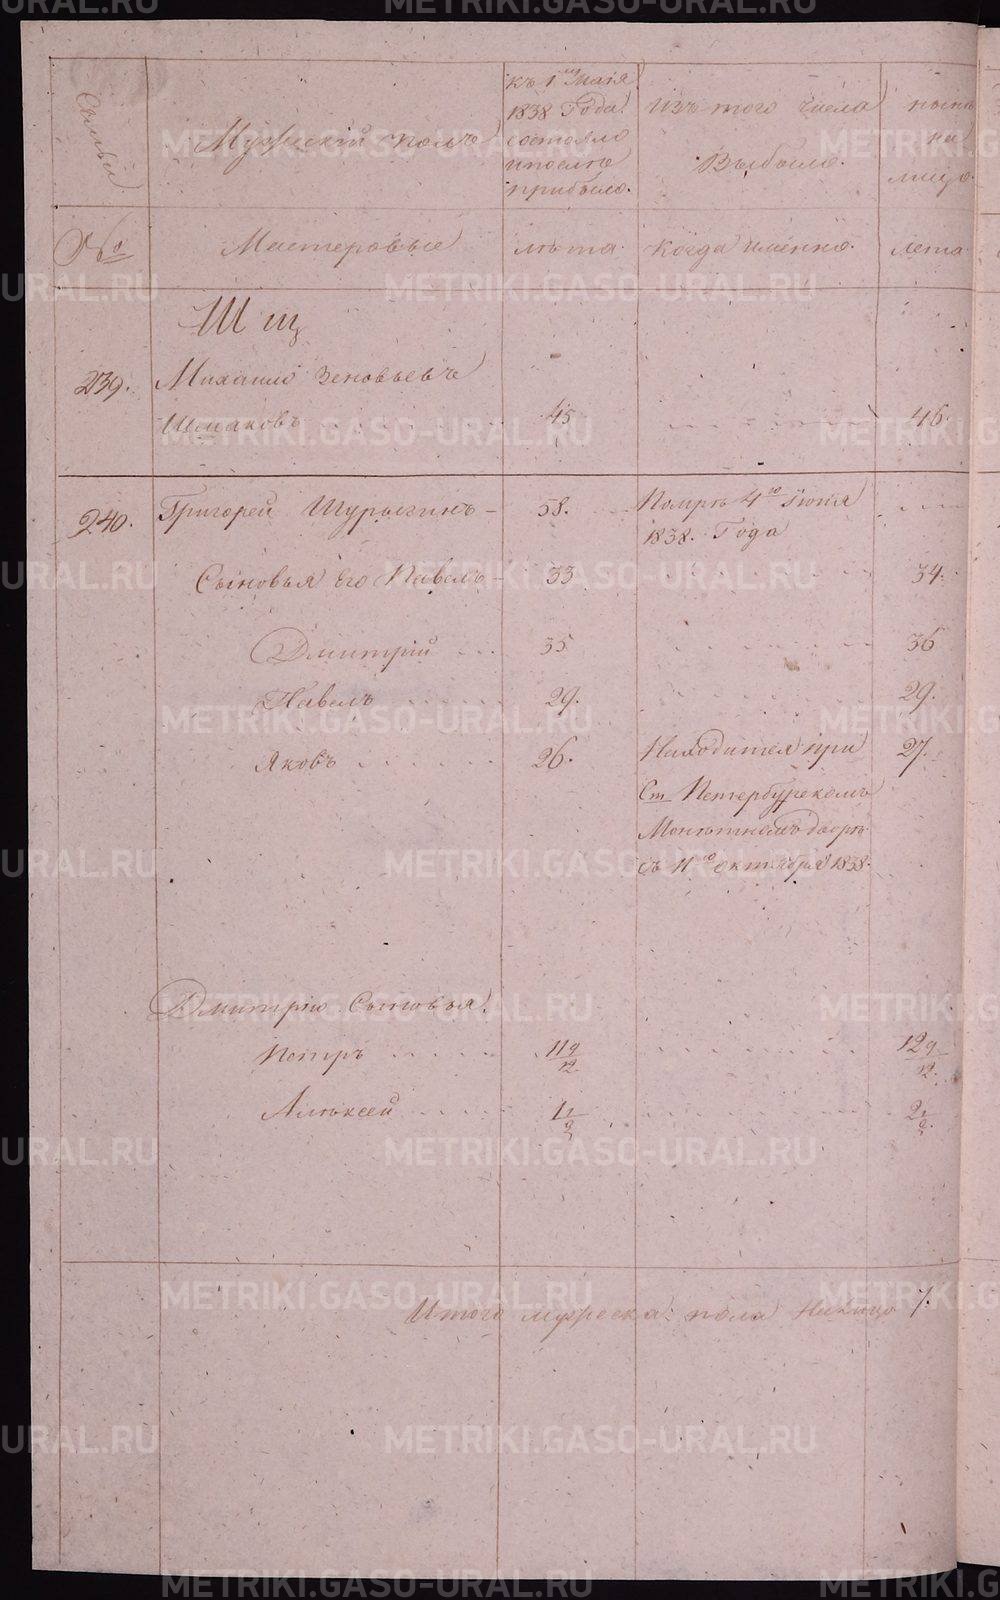 Семьи
Мужескій полъ
къ 1му Маія
1838 Года
состояло
и послѣ
прибыло.
Изъ того числа
Выбыло.
нынѣ
на
лицо
№
Мастеровые
лѣта.
когда имѣнно.
лета
Ш щ
239.
Михаило Зеновьевъ
Шмаковъ
45
46
240.
Григорей Шурыгинъ
58.
Помръ 4го Іюня
1838. Года
Сыновья Его Павелъ
33
34.
Дмитрій
35
36
Павелъ
29.
29.
Яковъ
26.
Находится при
27.
Ст Петербургскомъ
Монѣтномъ дворѣ
съ 11го октября 1838.
Дмитрію Сыновья.
Петръ
11 9/12
12 9/12.
Алѣксей
1 1/2
2 1/2.
Итого мужеска: пола на лицо 7.
METRIKI.GASO-URAL.RU